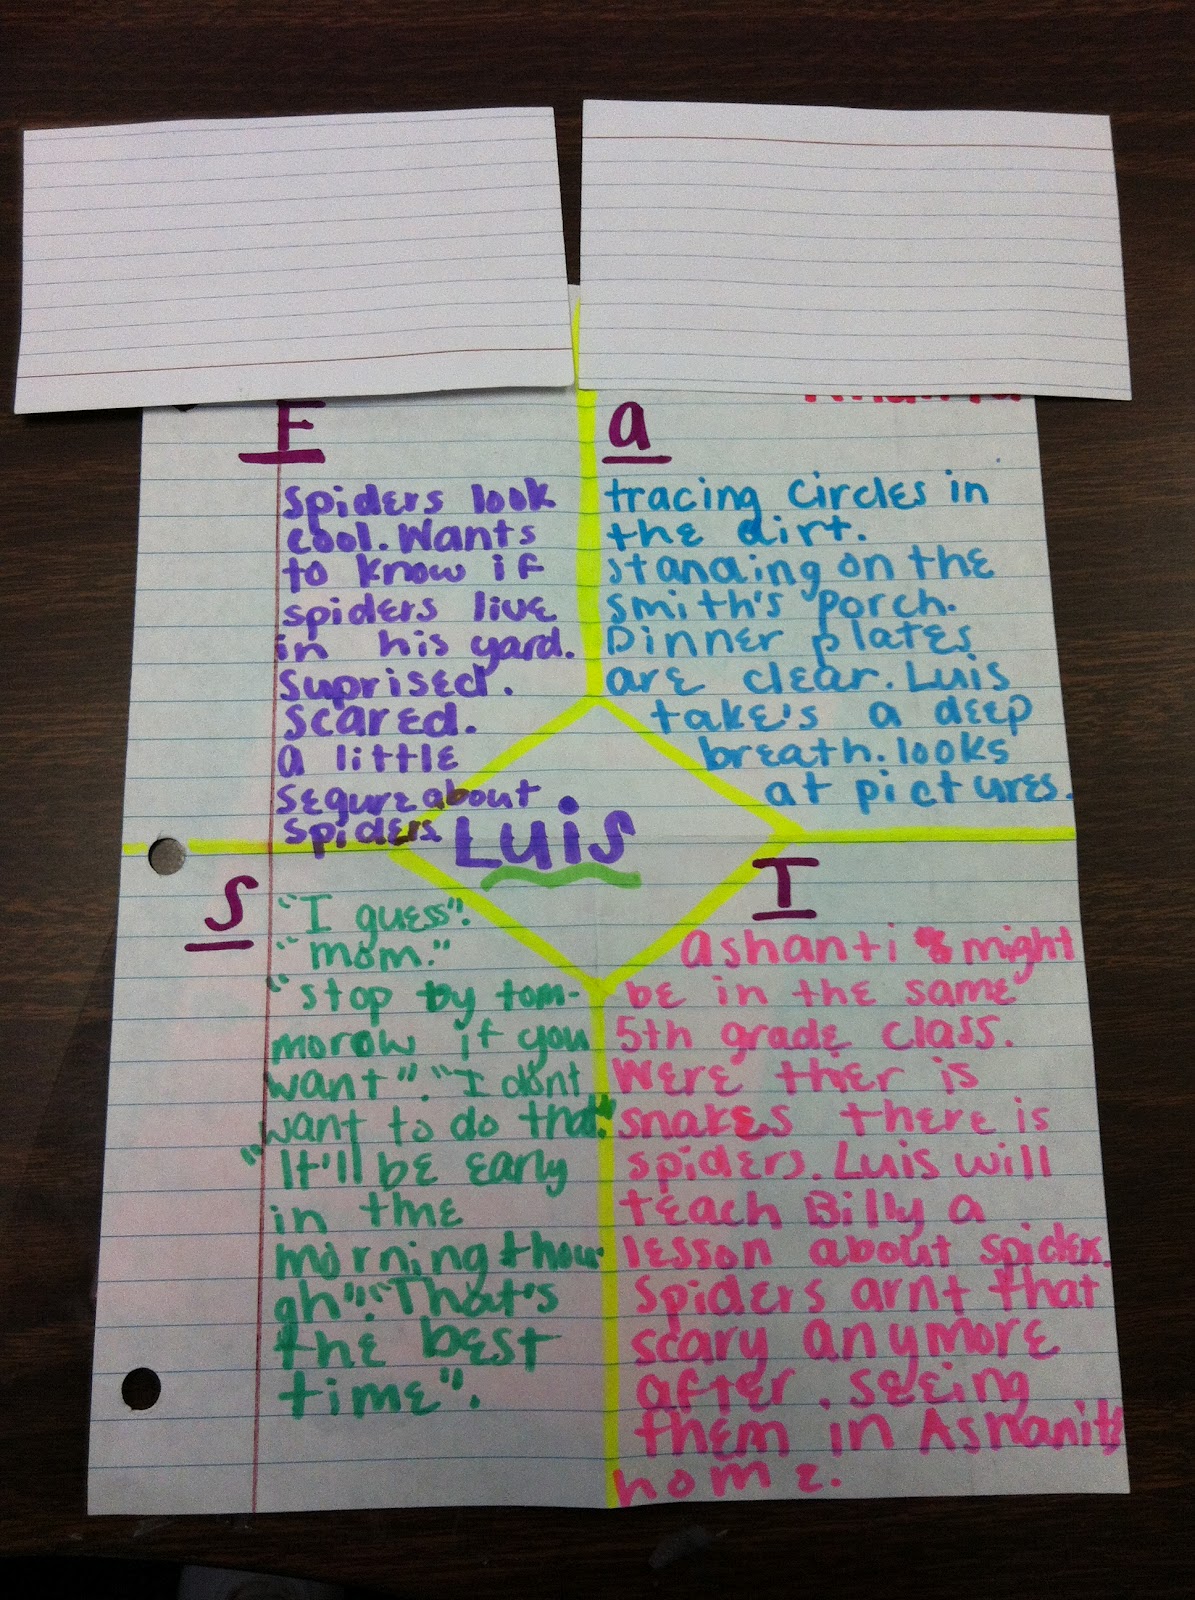 F
Spiders look
cool. Wants
to know if
spiders live
in his yard.
Suprised.
Scared.
a little
sequre about
spiders
a
tracing circles in
the dirt.
standing on the
smith's porch.
Dinner plates
are clear. Luis
take's a deep
breath. looks
at pictures.
Luis
S
"I guess".
"mom."
"stop by tom-
morow if you
want". "I dont
want to do that."
"It'll be early
in the
morning thou
gh". "That's
the best
time".
I
Ashanti might
be in the same
5th grade class.
Were ther is
snakes there is
spiders. Luis will
teach Billy a
lesson about spiders.
Spiders arnt that
scary anymore
after. seeing
them in Ashanits
home.